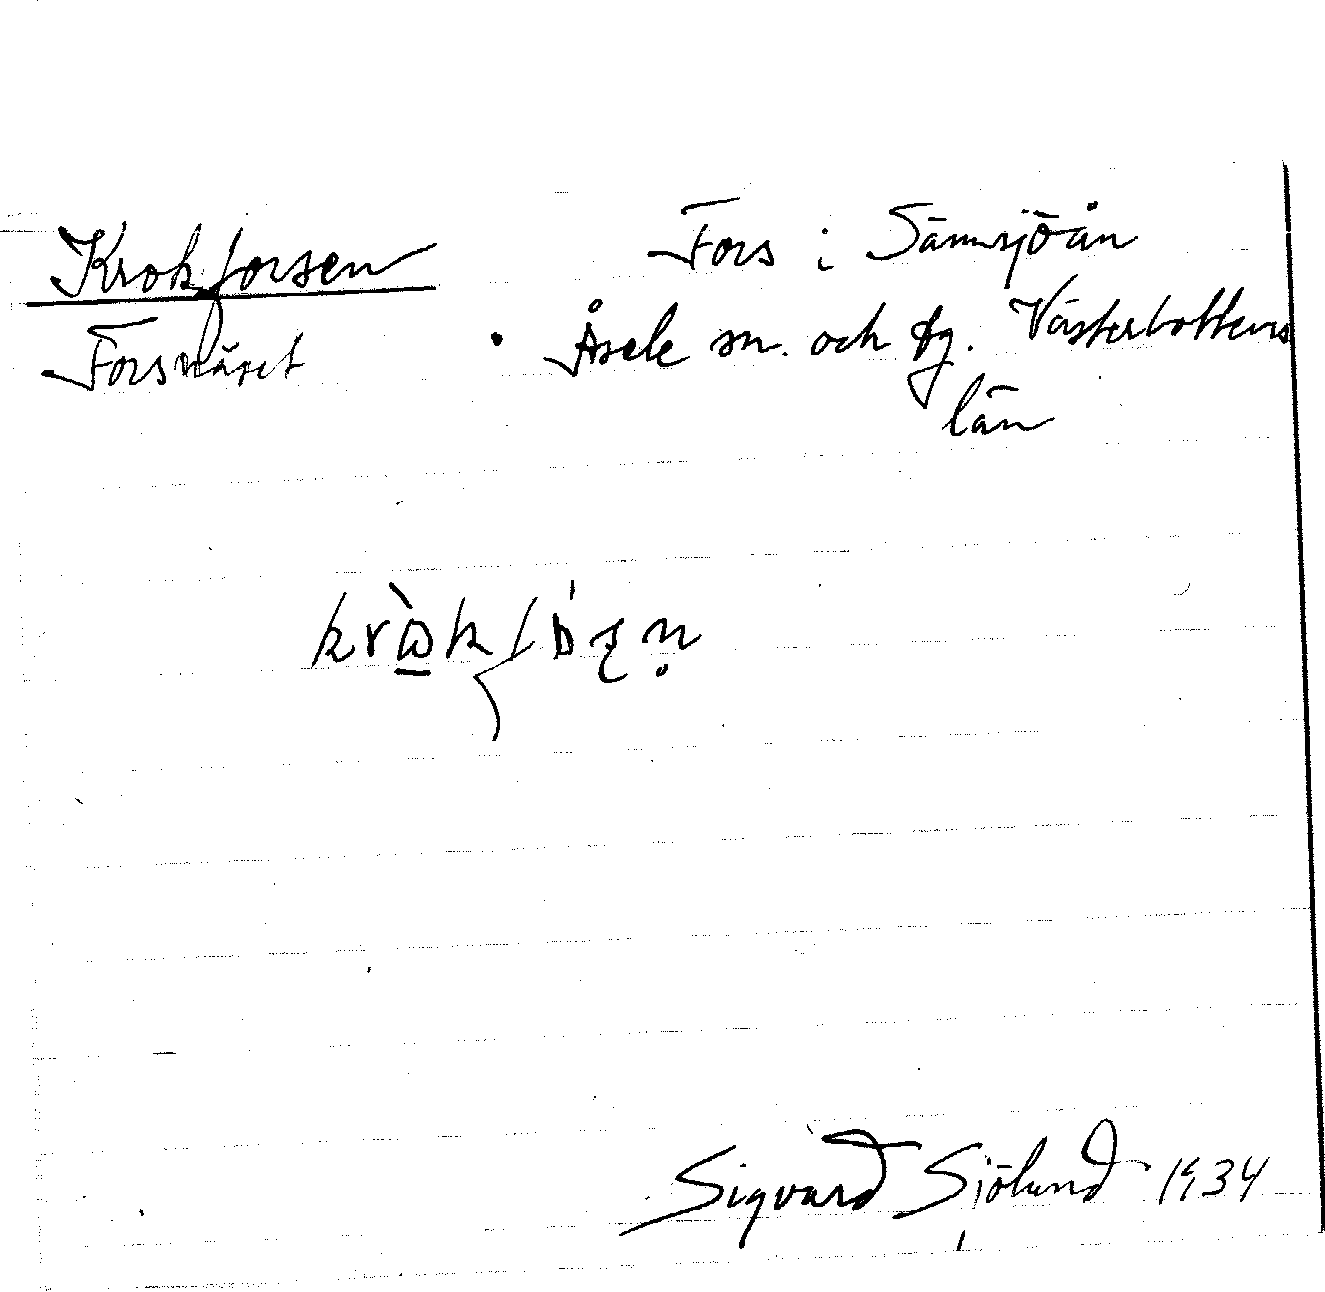 Krokforsen
Forsnäset
Fors i Sämsjöån
Åsele sn. och tg. Västerbottens
län
Sigvard Sjölund 1934